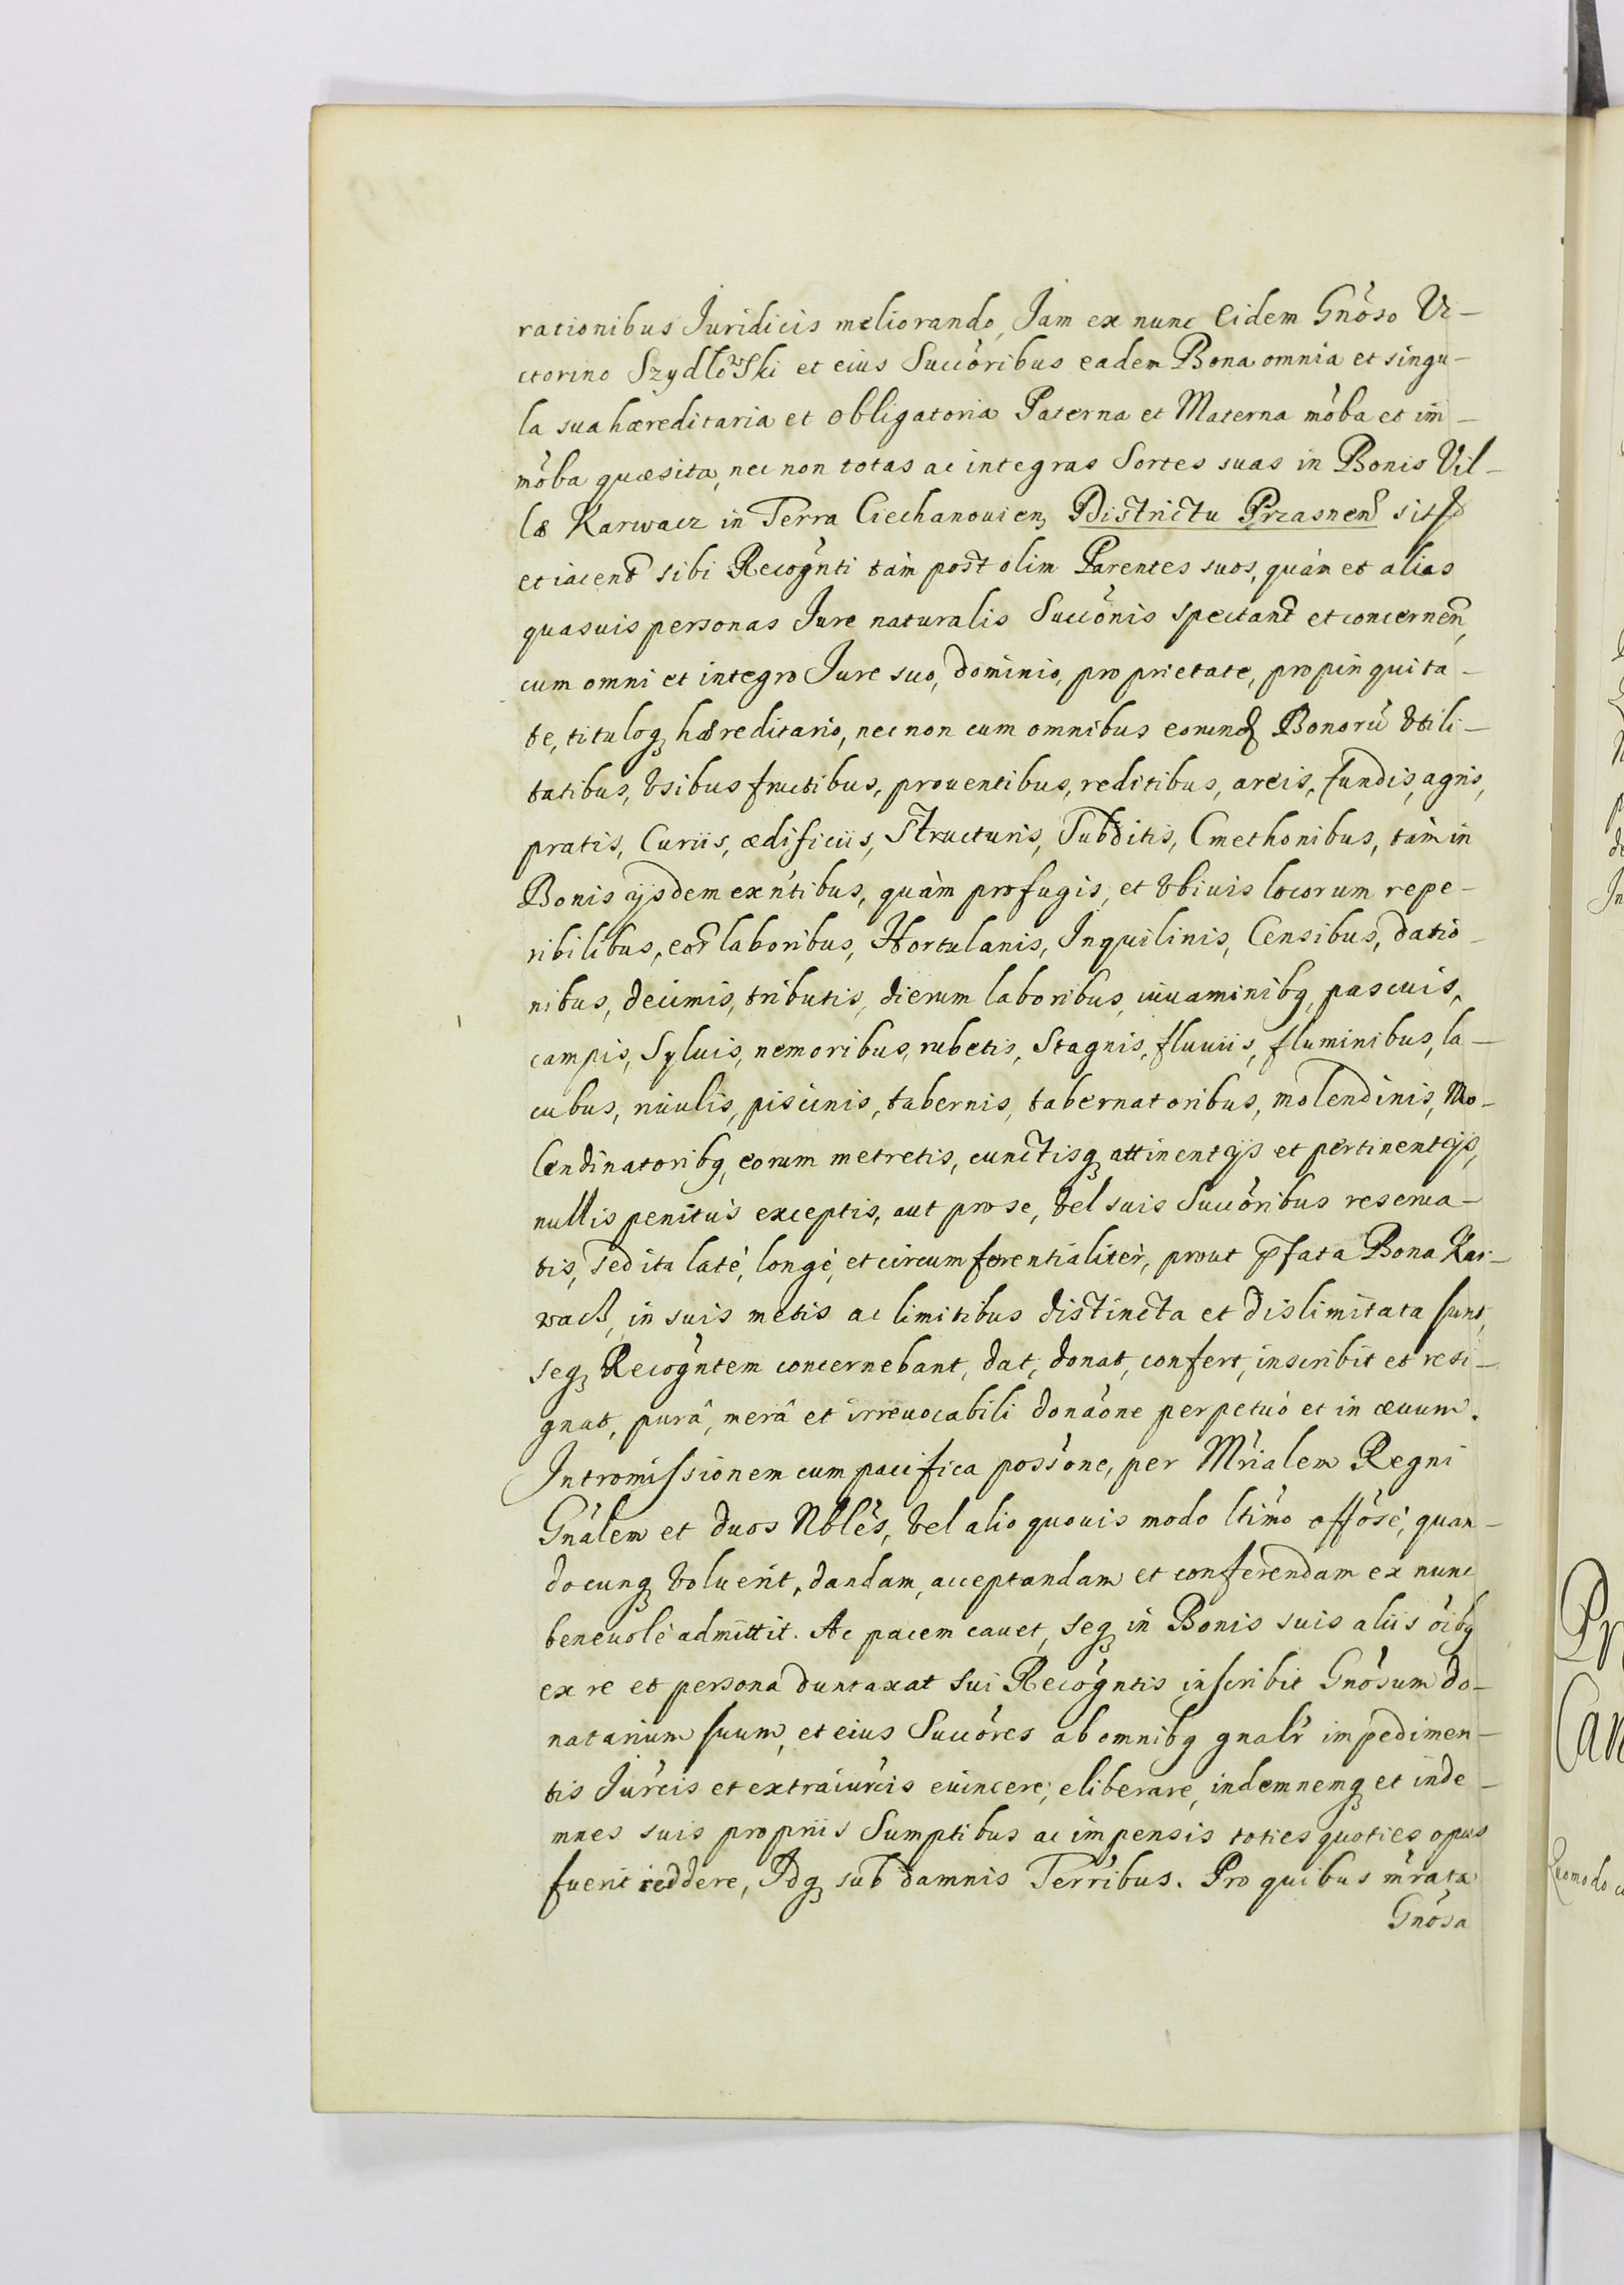 rationibus Juridicis meliorando, Jam ex nunc Eidem Gnôso Vi-
ctorino Szydłowski et eius Succôribus eadem Bona omnia et singu-
la sua hæreditaria et obligatoria Paterna et Materna môba et im-
môba quæsita, nec non totas ac integras Sortes suas in Bonis Vil-
læ Karwacz in Terra Ciechanouien, Districtu Przasnen
et iacent sibi Recognti tàm post olim Parentes suos, quàm et alias
quasuis personas Jure naturalis Succônis spectant et concernen,
cum omni et integro Jure suo, dominio, proprietate, propinquita-
te, tituloq hæreditario, nec non cum omnibus eorund Bonorũ Vtili-
tatibus, Vsibus fructibus, prouentibus, reditibus, areis, fundis, agris,
pratis, Curiis, ædificiis, Structuris, Subditis, Cmethonibus, tàm in
Bonis ijsdem exntibus, quàm profugis, et Vbiuis locorum repe-
ribilibus, eor laboribus, Hortulanis, Inquilinis, Censibus, datio-
nibus, decimis, tributis, dierum laboribus, iuuaminibq, pascuis,
campis, Syluis, nemoribus, rubetis, Stagnis, fluuiis, fluminibus, la-
cubus, riuulis, piscinis, tabernis, tabernatoribus, molendinis, Mo-
lendinatoribq, eorum metretis, cunctisq attinentijs et pertinentijs,
nullis penitùs exceptis, aut pro se, Vel suis Succôribus reserua-
tis, sed ita latè, longè, et circumferentialitèr, prout pfata Bona Kar-
wacz, in suis metis ac limitibus distincta et dislimitata sunt,
seq Recogntem concernebant, dat, donat, confert, inscribit et resi-
gnat, purâ, merâ et irreuocabili donaône perpetuò et in æuum.
Intromissionem cum pacifica possône, per Mrialem Regni
Gnâlem et duos Nbles, Vel alio quouis modo ltimo offôse, quan-
docunq Voluerit, dandam, acceptandam et conferendam ex nunc
beneuolè admittit. Ac pacem cauet, seq in Bonis suis aliis oibq
ex re et persona duntaxat sui Recogntis inscribit Gnôsum do-
natarium suum, et eius Succôres ab omnibq gnalr impedimen-
tis Jurcis et extraiurcis euincere, eliberare, indemnemq et inde-
mnes suis propriis Sumptibus ac impensis toties quoties opus
fuerit reddere, Idq sub damnis Terribus. Pro quibus mrata
Gnôsa